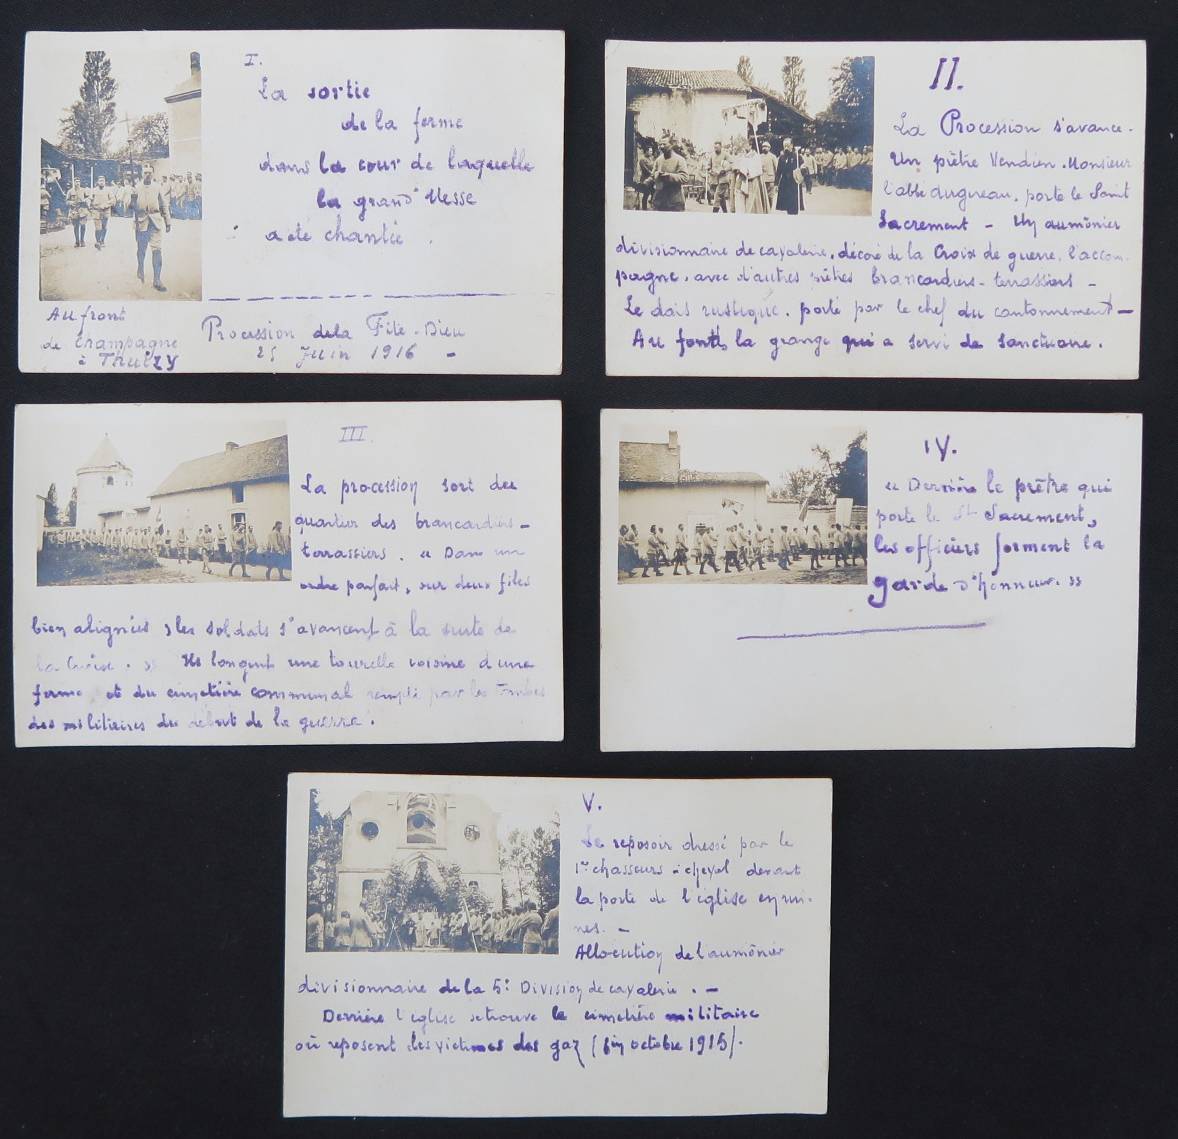 I.
La sortie
de la ferme
dans la cour de laquelle
la grand' Messe
a été chantée.
Au front
de Champagne
à Thuizy
Procession de la Fête-Dieu
25 Juin 1916 -
II.
La Procession s'avance.
Un prêtre Vendéen. Monsieur
l'abbé Augureau, porte le Saint
Sacrement - Un aumônier
divisionnaire de cavalerie, décoré de la Croix de guerre, l'accom-
pagne, avec d'autres prêtres brancardiers-terrassiers -
Le dais rustique, porté par le chef du cantonnement -
Au fond, la grange qui a servi de sanctuaire.
III.
La procession sort du
quartier des brancardiers-
terrassiers. "Dans un
ordre parfait, sur deux files
bien alignées, les soldats s'avancent à la suite de
la Croix." Ils longent une tourelle voisine d'une
ferme et du cimetière communal rempli par les tombes
des militaires du début de la guerre.
IV.
"Derrière le prêtre qui
porte le St Sacrement,
les officiers forment la
garde d'honneur."
V.
Le reposoir dressé par le
1er chasseurs à cheval devant
la porte de l'église en rui-
nes. -
Allocution de l'aumônier
divisionnaire de la 5e Division de cavalerie. -
Derrière l'église se trouve le cimetière militaire
où reposent les victimes des gaz (fin octobre 1915).